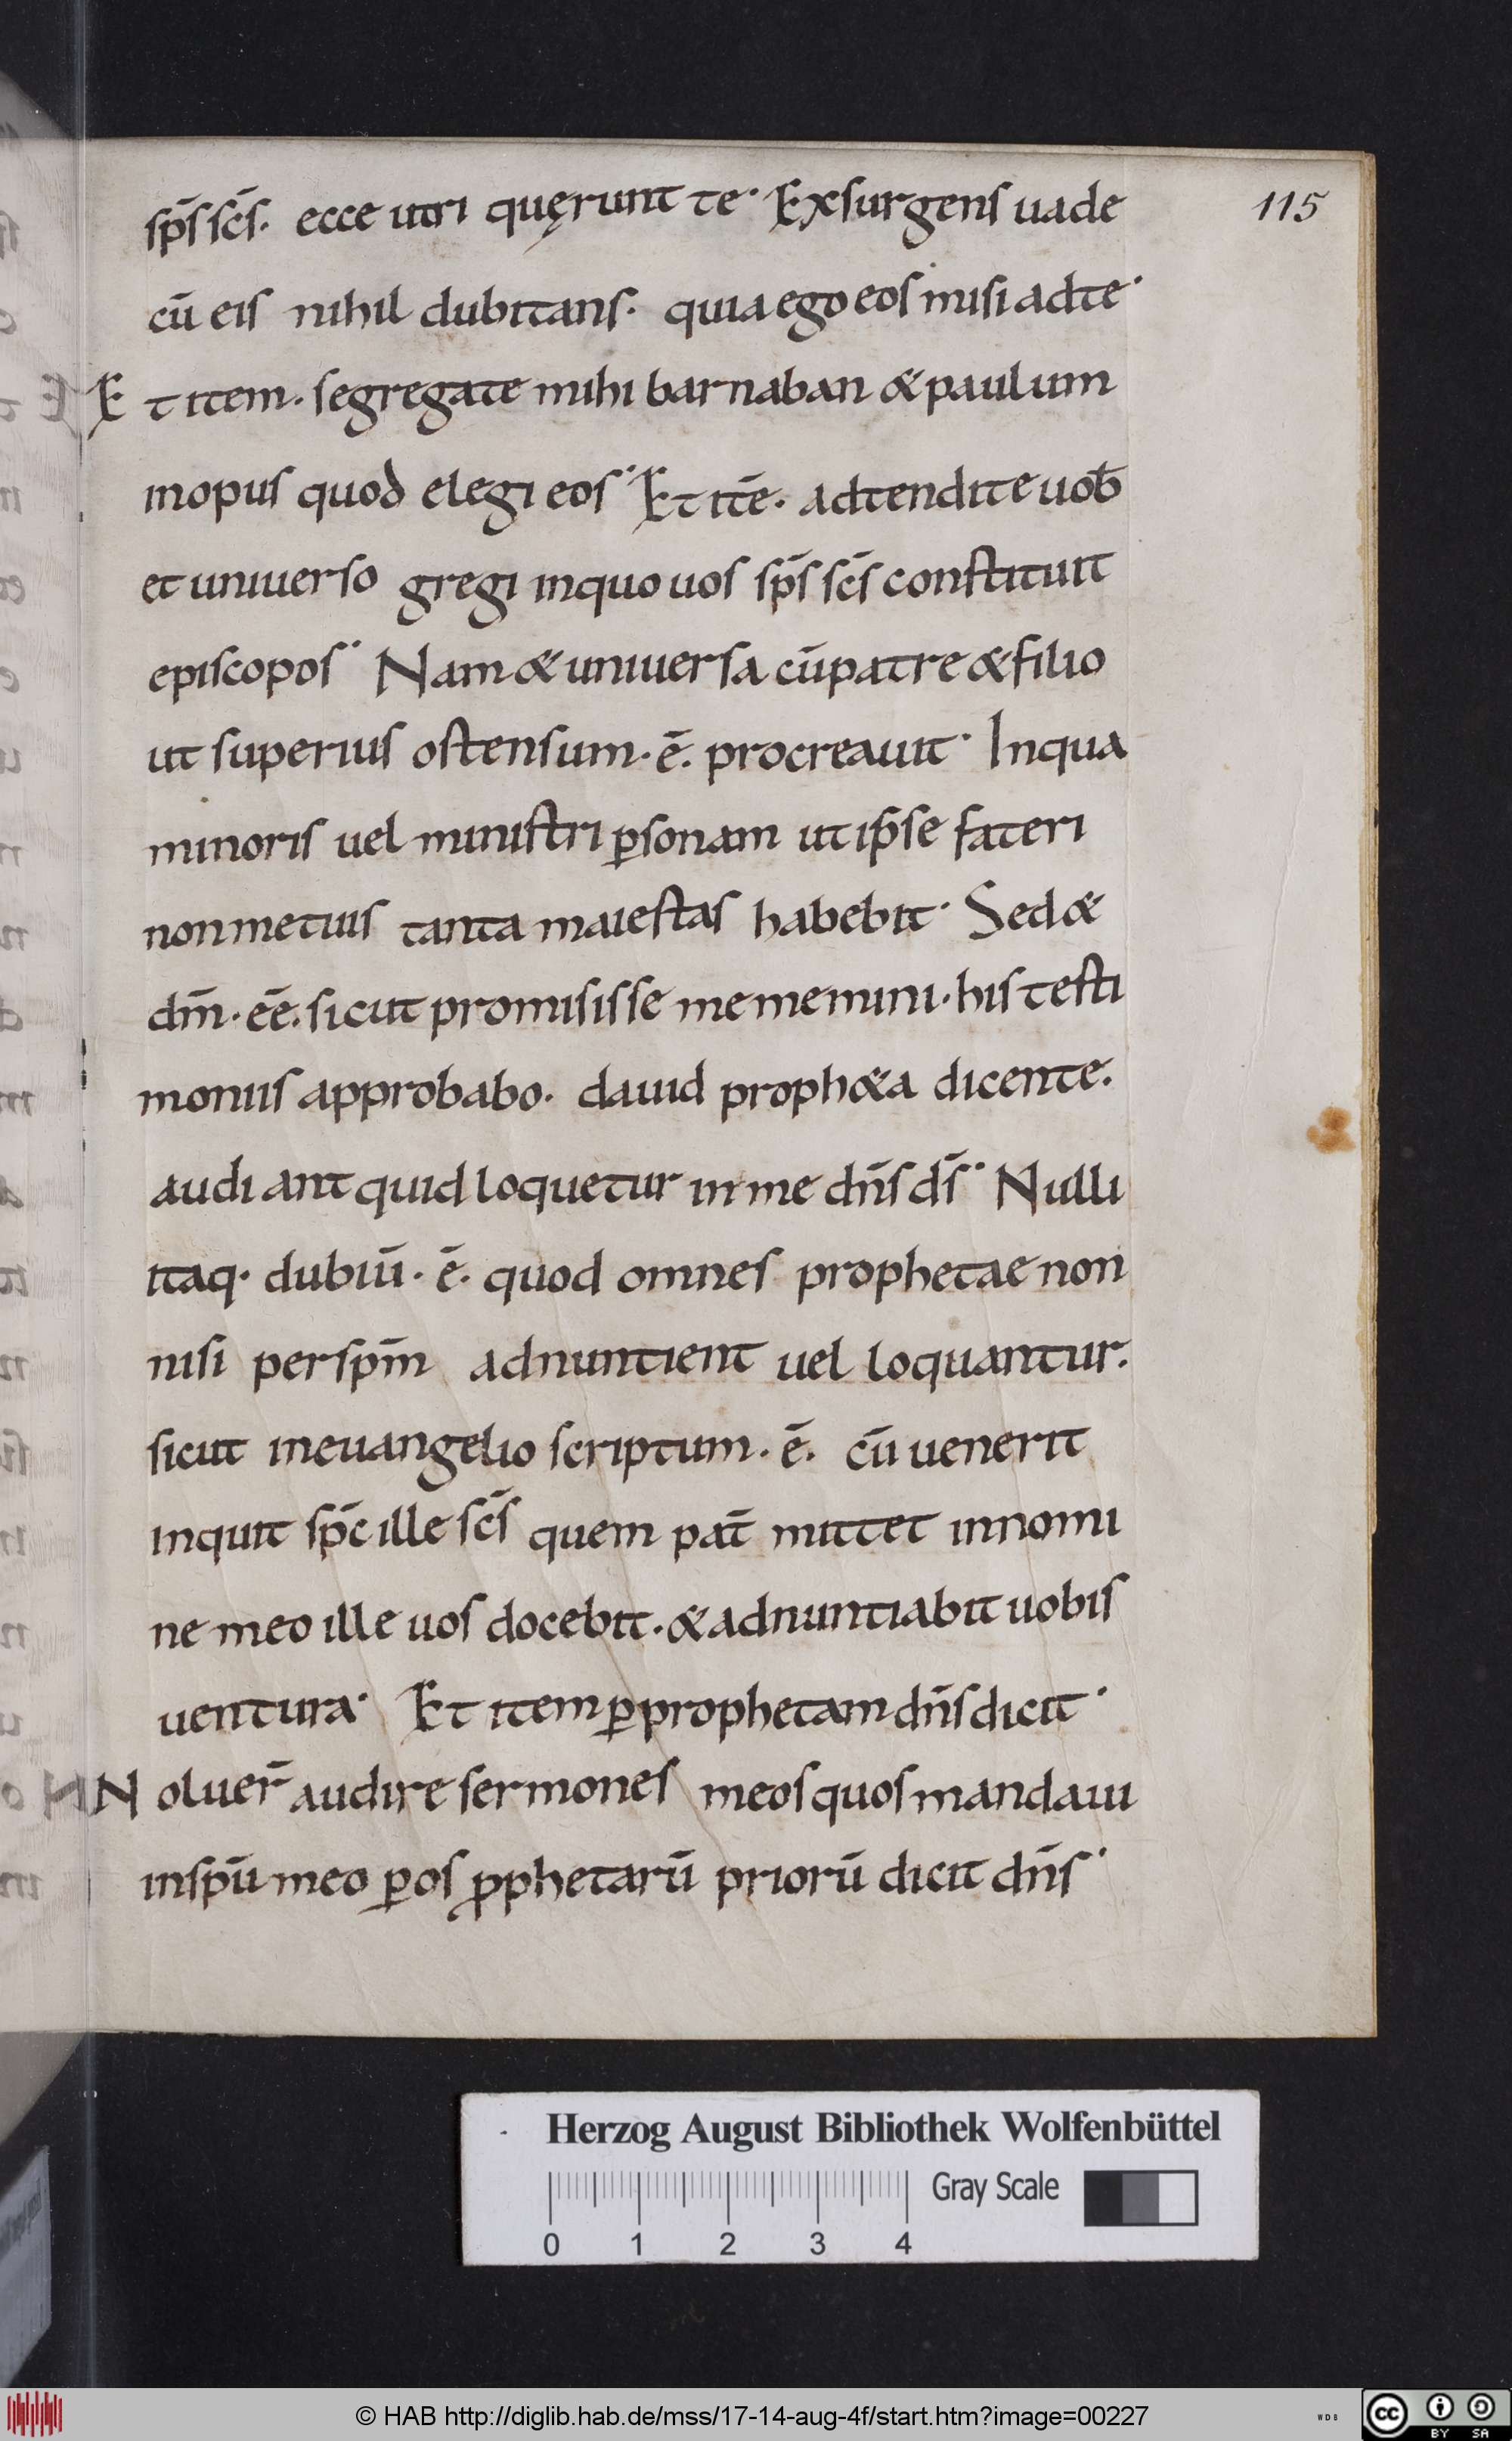 sp̄s sc̄s. ecce uiri quęrunt te· Exsurgens uade
115
cū eis nihil dubitans. quia ego eos misi ad te·
Et item. segregate mihi barnaban & paulum
inopus quod elegi eos· Et itē. adtendite uob̄
et uniuerso gregi inquo uos sp̄s sc̄s constituit
episcopos· Nam & uniuersa cū patre & filio
ut superius ostensum. ē. procreauit· Inqua
minoris uel ministri ꝑsonam ut ip̄se fateri
non metuis tanta maiestas habebit· Sed &
dm̄. eē. sicut promisisse me memini. his testi
moniis approbabo. dauid proph&a dicente.
audiant quid loquetur in me dn̄s ds̄· Nulli
itaq· dubiū. ē. quod omnes prophetae non
nisi per spm̄ adnuntient uel loquantur.
sicut ineuangelio scriptum. ē. cū uenerit
inquit sp̄c ille sc̄s quem pat̄ mittet in nomi
ne meo ille uos docebit. & adnuntiabit uobis
uentura· Et item ꝑ prophetam dn̄s dicit·
Noluer̄ audire sermones meos quos mandaui
inspū meo ꝑ os ꝓphetarū priorū dicit dn̄s·
Herzog August Bibliothek Wolfenbüttel
Gray Scale
0 1 2 3 4
© HAB http://diglib.hab.de/mss/17-14-aug-4f/start.htm?image=00227
WDB
cc BY SA